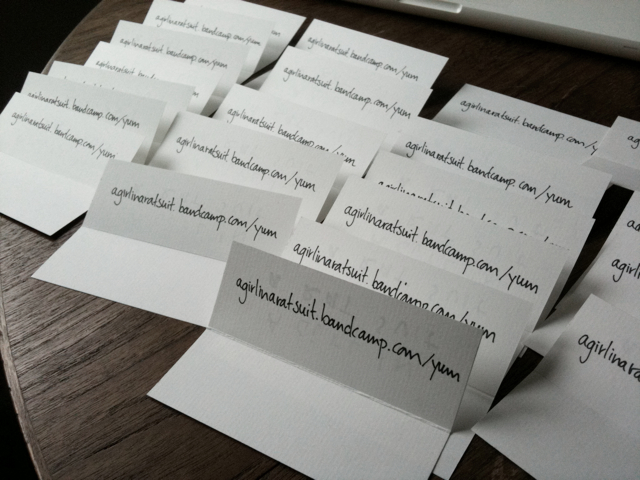 agirlinaratsuit.bandcamp.com/yum
agirlinaratsuit.bandcamp.com/yum
agirlinaratsuit.bandcamp.com/yum
agirlinaratsuit.bandcamp.com/yum
agirlinaratsuit.bandcamp.com/yum
agirlinaratsuit.bandcamp.com/yum
agirlinaratsuit.bandcamp.com/yum
agirlinaratsuit.bandcamp.com/yum
agirlinaratsuit.bandcamp.com/yum
agirlinaratsuit.bandcamp.com/yum
agirlinaratsuit.bandcamp.com/yum
agirlinaratsuit.bandcamp.com/yum
agirlinaratsuit.bandcamp.com/yum
agirlinaratsuit.bandcamp.com/yum